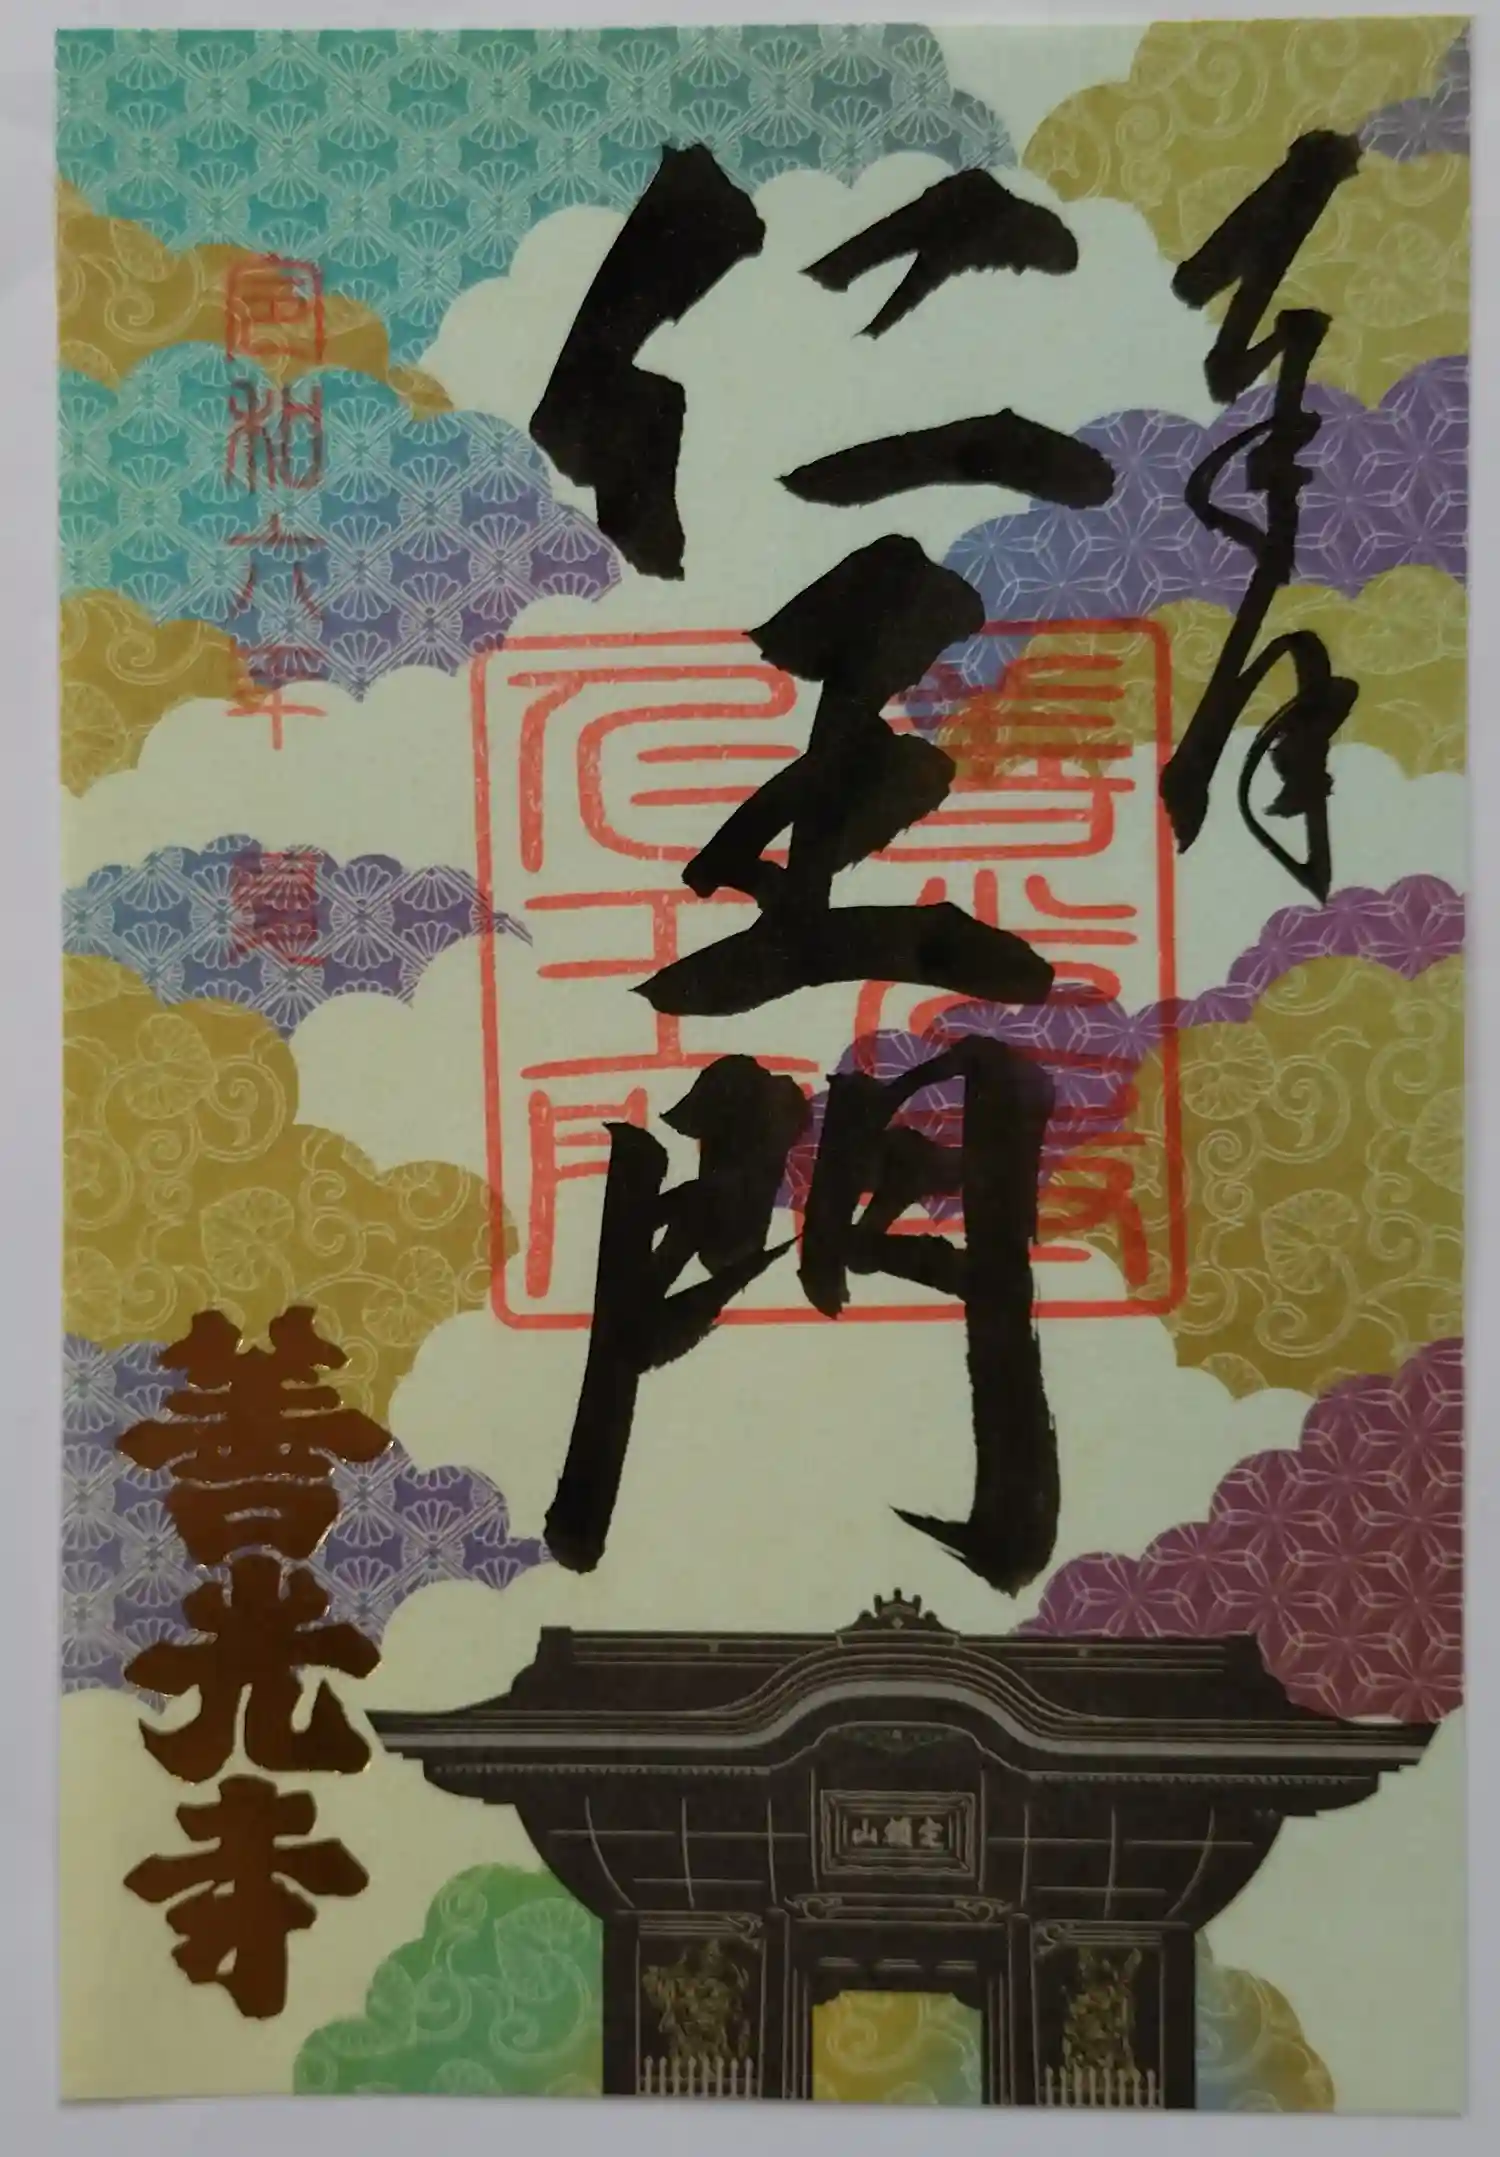 奉拝
仁王門
仁王門
令和六年夏
善光寺
定額山